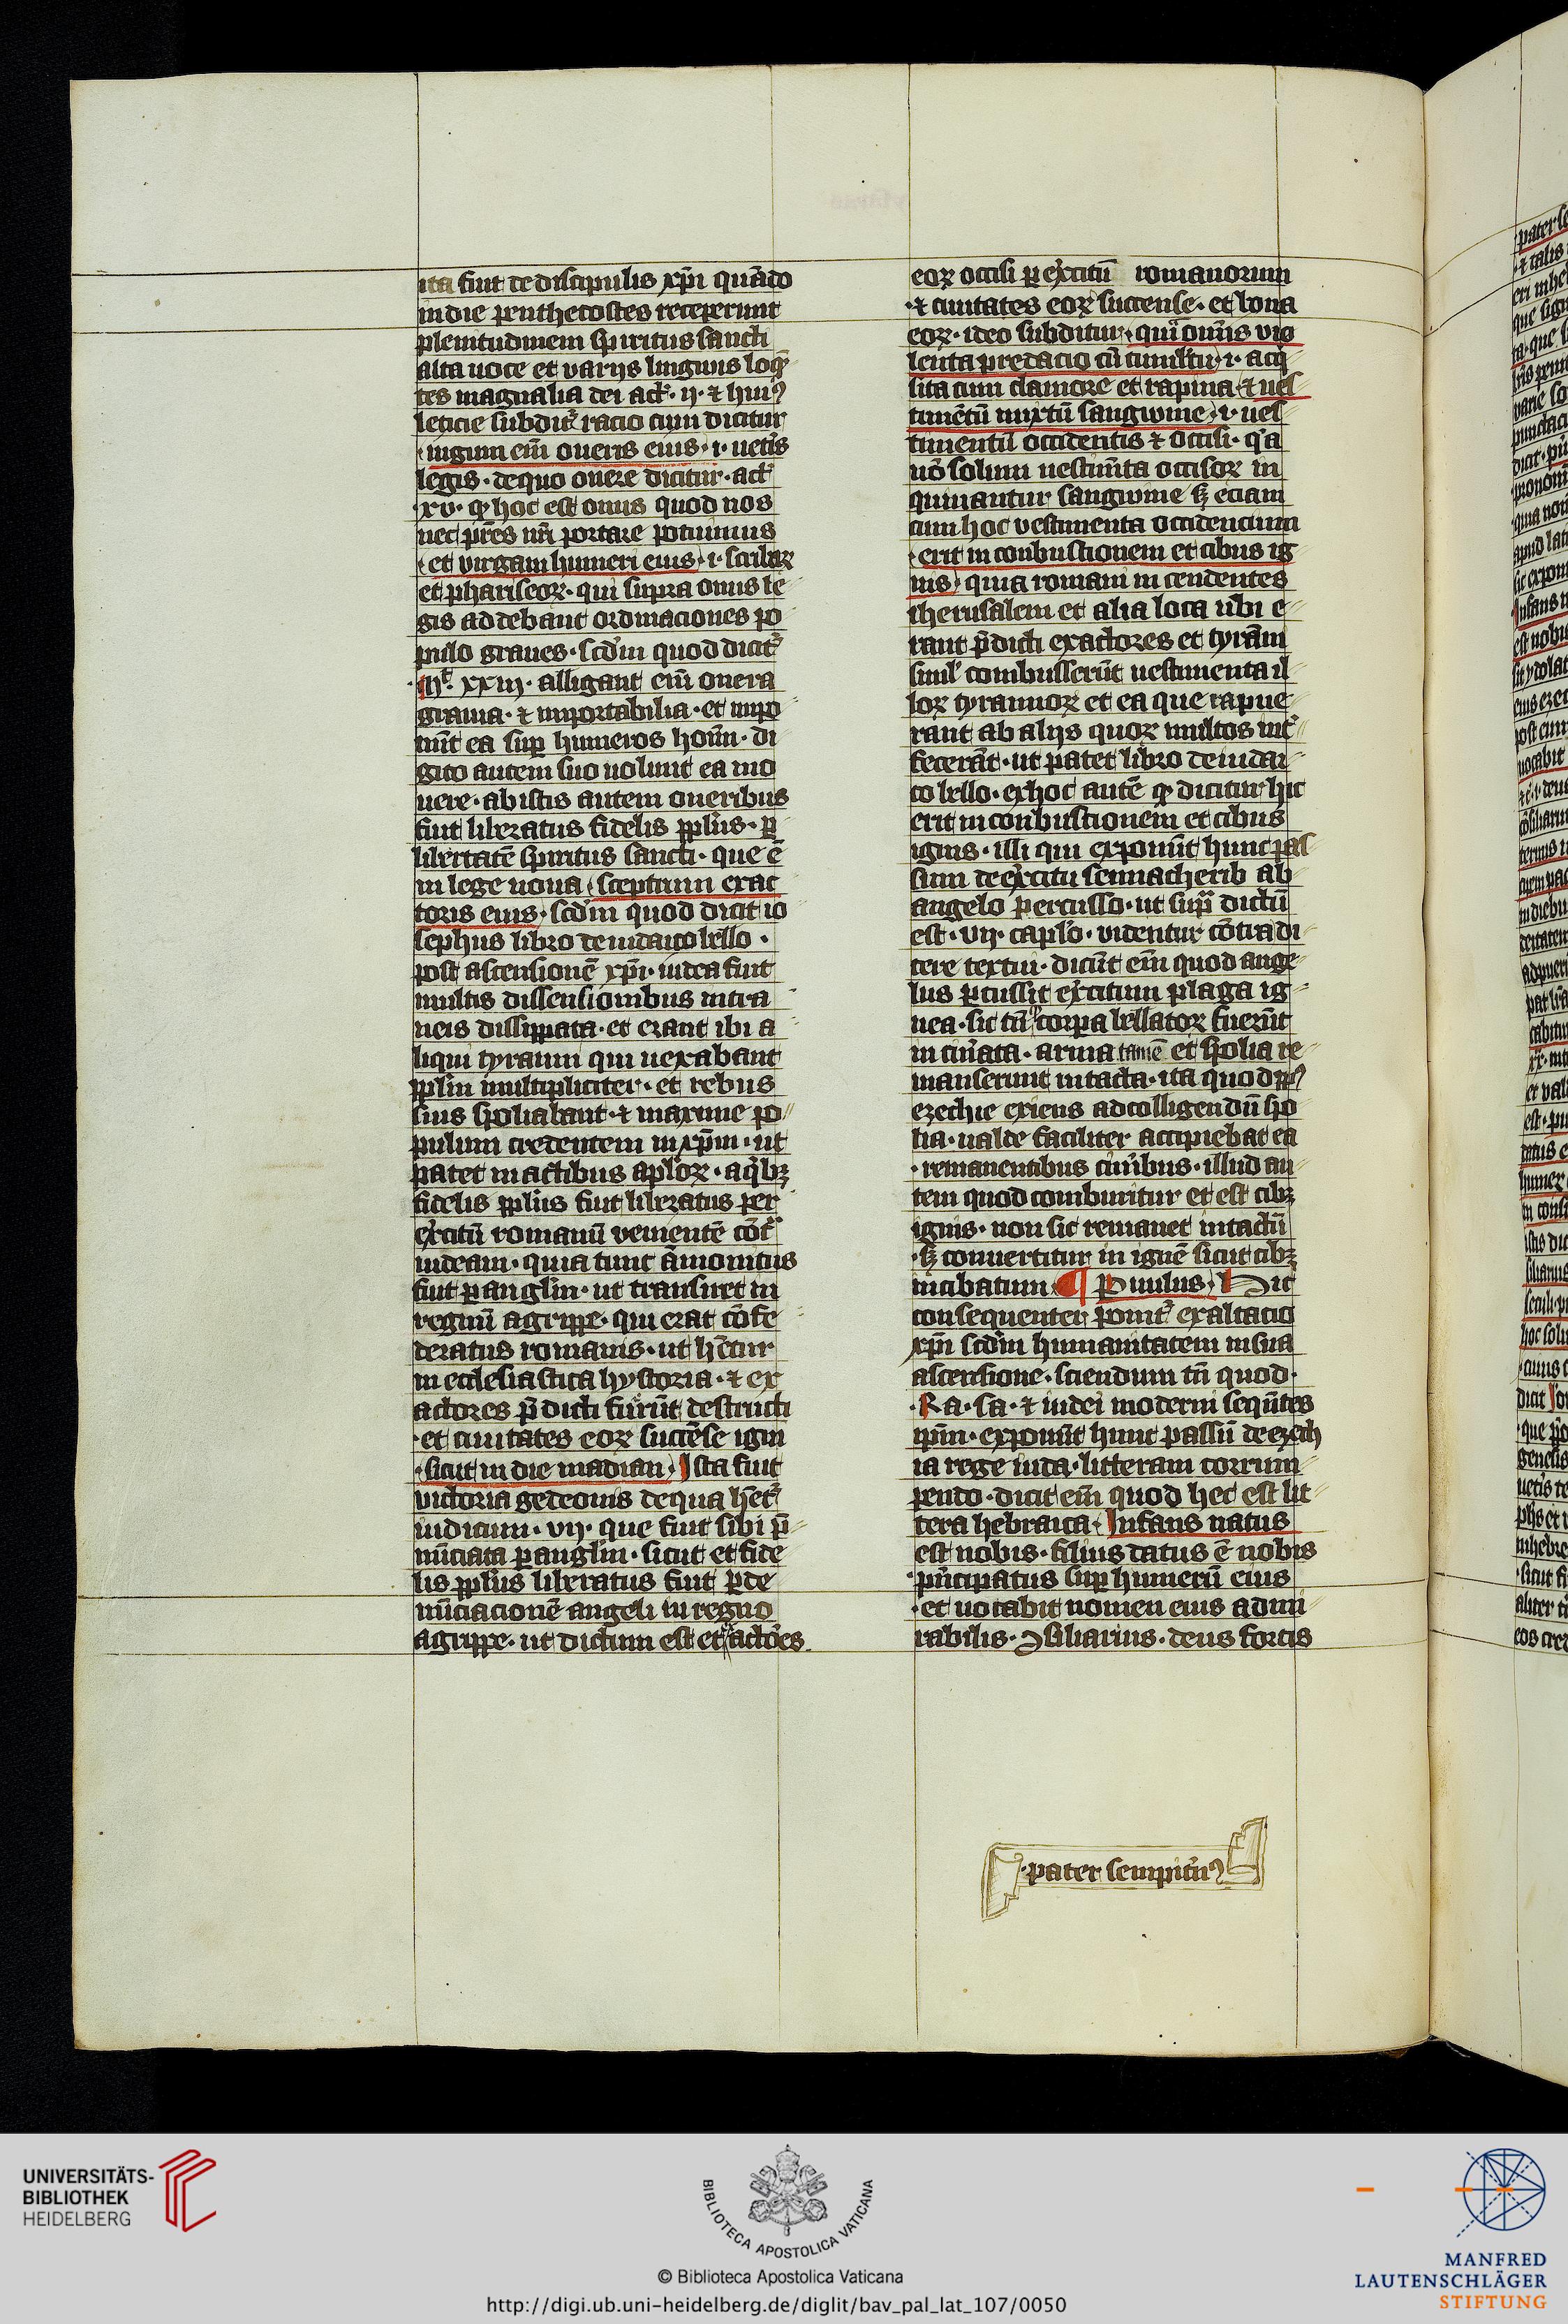 ita fuit de discipulis xp̄i quādo
in die penthecostes receperunt
plenitudinem spiritus sancti
alta uoce et varijs linguis loq̄
tes magnalia dei act̉· ij· ⁊ huiꝰ
leticie subdit̉ racio cum dicitur
iugum em̄ oneris eius· i· uet̉is
legis· de quo onere dicitur· act̉
xv· ꝙ hoc est onus quod nos
nec pr̄es nr̄i portare potuimus
et virgam humeri eius· i· scribaꝝ
et phariseoꝝ· qui supra onus le
gis addebant ordinaciones po
pulo graues· scd̉m quod dicit̉
Mt̉· xxiij· alligant em̄ onera
grauia· ⁊ inportabilia· et inpo
nūt ea sup̱ humeros hoīm· di
gito autem suo nolunt ea mo
uere· ab istis autem oneribus
fuit liberatus fidelis ppl̉us· ꝑ
libertatē spiritus sancti· que ē
in lege noua sceptrum exac
toris eius· scd̉m quod dicit io
sephus libro de iudaico bello·
post ascensionē xp̄i· iudea fuit
multis dissensionibus intra
neis dissippata· et erant ibi a
liqui tyranni qui uexabant
ppl̉m multipliciter· et rebus
suis spoliabant· ⁊ maxime po
pulum credentem in xp̄m· ut
patet in actibus apl̉oꝝ· a q̉bꝫ
fidelis ppl̉us fuit liberatus per
ex̉citū romanū venientē cōt̉
iudeam· quia tunc āmonitus
fuit ꝑ angl̉m· ut transiret in
regnū agrippe· qui erat cōfe
deratus romanis· ut hētur
in ecclesiastica hystoria· ⁊ ex
actores p̄dicti fuerūt destructi
et ciuitates eoꝝ succēse igni
sicut in die madian Ista fuit
victoria gedeonis de qua hēt̉
iudicum· vij· que fuit sibi p̄
nūciata ꝑ angl̉m· sicut et fide
lis ppl̉us liberatus fuit ꝑ de
nūciacionē angeli in regno
agrippe· ut dictum est et actōes
eoꝝ occisi ꝑ ex̉citū romanorum
⁊ ciuitates eoꝝ succense· et bona
eoꝝ· ideo subditur· quī om̄is vio
lenta predacio cū tumultu i· acq̉
sita cum clamore et rapina ⁊ ues
timētū mixtū sangwine i· ues
timentū occidentis ⁊ occisi· q̉a
nō solum uestim̄ta occisoꝝ in
quinantur sangwine sꝫ eciam
cum hoc vestimenta occidencium
erit in conbustionem et cibus ig
nis quia romani incendentes
iherusalem et alia loca ubi e
rant p̄dicti exactores et tyrāni
simul̉ combusserūt uestimenta il
loꝝ tyrannoꝝ et ea que rapue
rant ab alijs quoꝝ multos int̉
fecerāt· ut patet libro de iudai
co bello· ex hoc autē ꝙ dicitur hic
erit in conbustionem et cibus
ignis· illi qui exponūt hunc pas
sum de ex̉citu sennacherib ab
angelo percusso· ut supͣ dictū
est· vij· capl̉o· videntur cōtradi
cere textui· dicūt em̄ quod ange
lus ꝑcussit ex̉citum plaga ig
nea· sic tn̄ ꝙ corpora bellatoꝝ fuerūt
incin̉ata· arma tamē et spolia re
manserunt intacta· ita quod ppl̉s
ezechie exiens ad colligendū spo
lia· ualde faciliter accipiebat ea
remanentibus cin̉ibus· illud au
tem quod comburitur et est cibꝫ
ignis· non sic remanet intactū
sꝫ conuertitur in ignē sicut cibꝫ
in cibatum ¶ Puulus· Hic
consequenter ponit̉ exaltacio
xp̄i scd̉m humanitatem in sua
ascensione· sciendum tn̄ quod
Ra· sa· ⁊ iudei moderni seq̄ntes
ip̄m· exponūt hunc passū de ezech
ia rege iuda· litteram corrum
pendo· dicit em̄ quod hec est lit
tera hebraica· Infans natus
est nobis· filius datus ē nobis
p̉ncipatus sup̱ humerū eius
et uocabit nomen eius admi
rabilis· ↄsiliarius· deus fortis
pater sempit̉nꝰ
UNIVERSITÄTS-
BIBLIOTHEK
HEIDELBERG
BIBLIOTECA APOSTOLICA VATICANA
© Biblioteca Apostolica Vaticana
http://digi.ub.uni-heidelberg.de/diglit/bav_pal_lat_107/0050
MANFRED
LAUTENSCHLÄGER
STIFTUNG